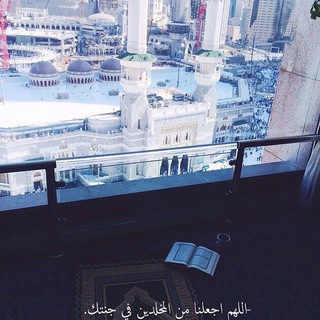 -اللهم اجعلنا من المخلدين في جنتك.